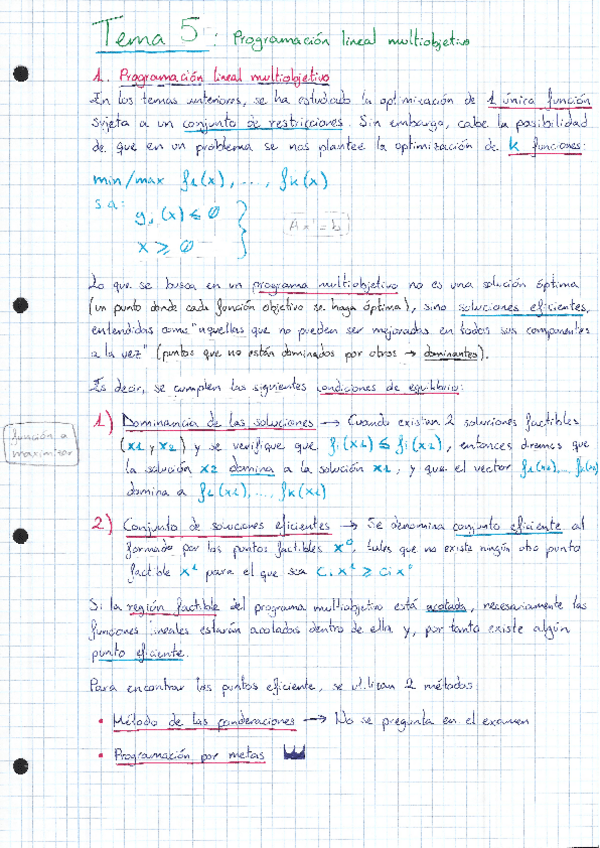 Tema 5: Programación lineal multiobjetivo
1. Programación lineal multiobjetivo
En los temas anteriores, se ha estudiado la optimización de 1 única función
sujeta a un conjunto de restricciones. Sin embargo, cabe la posibilidad
de que en un problema se nos plantee la optimización de k funciones:
min/max f1(x), ..., fk(x)
s.a:
gi(x) ≤ 0
x ≥ 0
Ax = b
Lo que se busca en un programa multiobjetivo no es una solución óptima
(un punto donde cada función objetivo se haga óptima), sino soluciones eficientes,
entendidas como "aquellas que no pueden ser mejoradas en todas sus componentes
a la vez" (puntos que no están dominados por otros → dominantes).
Es decir, se cumplen las siguientes condiciones de equilibrio:
1) Dominancia de las soluciones → Cuando existan 2 soluciones factibles
función a
maximizar
(x1 y x2) y se verifique que fi(x1) ≤ fi(x2), entonces diremos que
la solución x2 domina a la solución x1, y que el vector f1(x2), ... fk(x2)
domina a f1(x1), ..., fk(x1)
2) Conjunto de soluciones eficientes → Se denomina conjunto eficiente al
formado por los puntos factibles x⁰, tales que no existe ningún otro punto
factible x¹ para el que sea Ci x¹ ≥ Ci x⁰
Si la región factible del programa multiobjetivo está acotada, necesariamente las
funciones lineales estarán acotadas dentro de ella y, por tanto existe algún
punto eficiente.
Para encontrar los puntos eficiente, se utilizan 2 métodos
• Método de las ponderaciones → No se pregunta en el examen
• Programación por metas